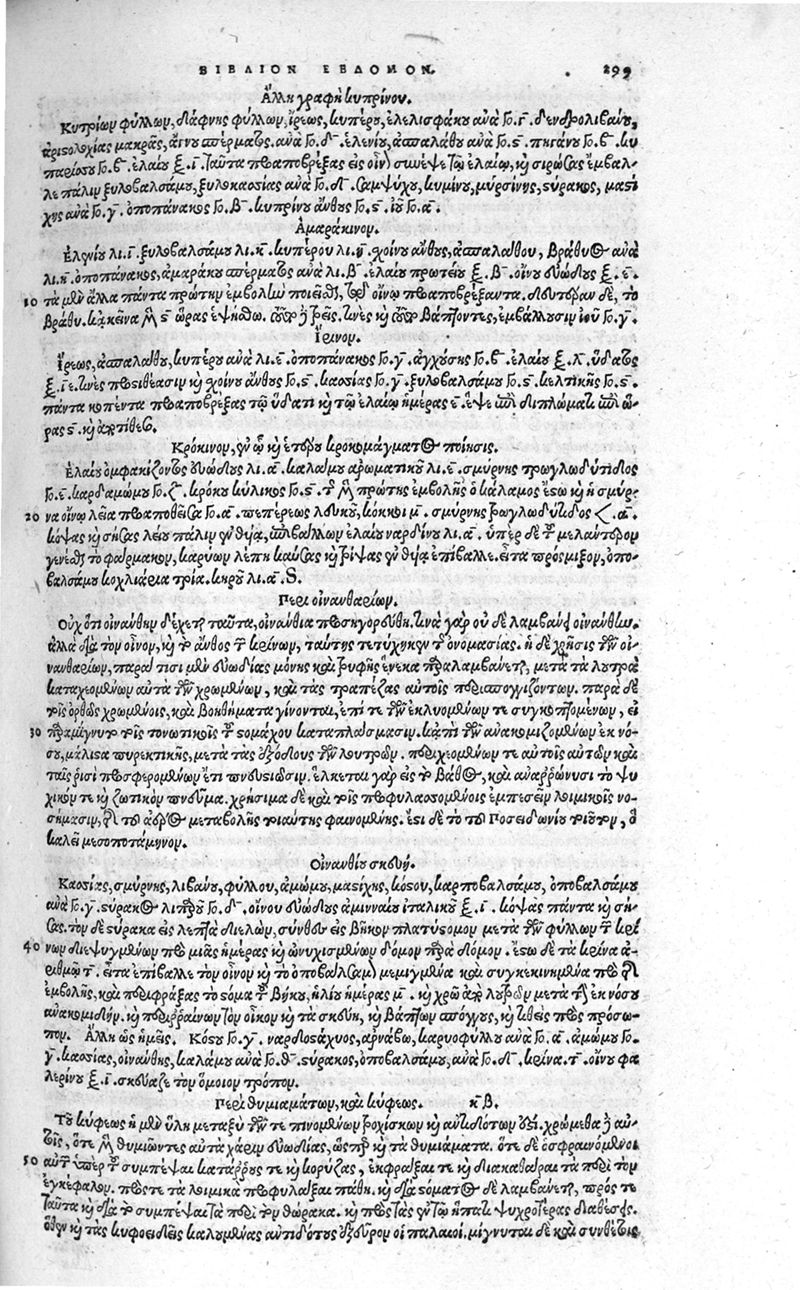 ΒΙΒΛΙΟΝ ΕΒΔΟΜΟΝ. 299
Ἄλλη γραφὴ κυπρίνου.
Κυπρίων φύλλων, δάφνης φύλλων, ἴρεως, κυπέρου, ἐλελισφάκου ἀνὰ Γο. γ. δενδρολιβάνου,
ἀριστολοχίας μακρᾶς, σπέρματος. ἀνὰ Γο. δ. ἑλενίου, ἀσπαλάθου ἀνὰ Γο. ς. πηγάνου Γο. ϐ. κυ
παρίσσου Γο. ϐ. ἐλαίου ξ. ι. ταῦτα προαποβρέξας εἰς οἶνον συνέψε τῷ ἐλαίῳ, καὶ σειρώσας ἔμβαλ-
λε πάλιν ξυλοβαλσάμου, ξυλοκασίας ἀνὰ Γο. δ. σαμψύχου, κυμίνου, μυρσίνης, στύρακος, μαστί
χης ἀνὰ Γο. γ. ὀποπάνακος Γο. β. κυπρίνου ἄνθους Γο. ς. ἰοῦ Γο. α.
Ἀμαράκινον.
Ἑλενίου λι. ι. ξυλοβαλσάμου λι. κ. κυπέρου λι. η. σχοίνου ἄνθους, ἀσπαλάθου, βράθυος ἀνὰ
λι. η. ὀποπάνακος, ἀμαράκου σπέρματος ἀνὰ λι. β. ἐλαίου πρωτείου ξ. β. οἴνου εὐώδους ξ. ε.
10 τὰ μὲν ἄλλα πάντα πρώτην ἐμβολὴν ποιεῖσθαι, τῷ οἴνῳ προαποβρέξαντα. δευτέραν δὲ, τὸ
βράθυ. κἀκεῖνα μὲν ς ὥρας ἑψήσθω. τοῦτο δὲ τρεῖς. τινὲς καὶ τοῦτο βάπτοντες, ἐμβάλλουσιν ἰοῦ Γο. γ.
Ἴρινον.
Ἴρεως, ἀσπαλάθου, κυπέρου ἀνὰ λι. ε. ὀποπάνακος Γο. γ. ἀγχούσης Γο. ϐ. ἐλαίου ξ. λ. ὕδατος
ξ. ιε. τινὲς προστιθέασιν καὶ σχοίνου ἄνθους Γο. ς. κασίας Γο. γ. ξυλοβαλσάμου Γο. ς. κελτικῆς Γο. ς.
πάντα κοπέντα προαποβρέξας τῷ ὕδατι καὶ τῷ ἐλαίῳ ἡμέρας ε. ἕψε ἐπὶ διπλώματος ἐπὶ ὥ-
ρας ς. καὶ ἀποτίθεσο.
Κρόκινον, ἐν ᾧ καὶ ἑτέρου κροκομάγματος ποίησις.
Ἐλαίου ὀμφακίζοντος εὐώδους λι. α. καλάμου ἀρωματικοῦ λι. ε. σμύρνης τρωγλοδύτιδος
Γο. ε. καρδαμώμου Γο. ζ. κρόκου κύλικος Γο. ς. τῆς μὲν πρώτης ἐμβολῆς ὁ κάλαμος ἔστω καὶ ἡ σμύρ-
20 να οἴνῳ λεῖα προαποθεῖσα Γο. α. πεπέρεως λευκοῦ, κόκκοι μ. σμύρνης τρωγλοδύτιδος < α.
κόψας καὶ σήσας λείου πάλιν ἐν θυίᾳ, ἐπιβάλλων ἐλαίου ναρδίνου λι. α. ὑπὲρ δὲ τοῦ μελάντερον
γενέσθαι τὸ φάρμακον, καρύων λέπη καύσας καὶ τρίψας ἐν θυίᾳ ἐπίβαλλε. εἶτα πρόσμιξον, ὀπο-
βαλσάμου κοχλιάρια τρία. κηροῦ λι. α. S.
Περὶ οἰνανθαρίων.
Οὐχ ὅτι οἰνάνθην δέχεται ταῦτα, οἰνάνθια προσηγορεύθη. τινὰ γὰρ οὐδὲ λαμβάνει οἰνάνθην.
ἀλλὰ διὰ τὸν οἶνον, καὶ τὸ ἄνθος τῶν κρίνων, ταύτης τετύχηκεν τῆς ὀνομασίας. ἡ δὲ χρῆσις τῶν οἰ-
νανθαρίων, παρὰ τισὶ μὲν εὐωδίας μόνης καὶ τρυφῆς ἕνεκα παραλαμβάνεται, μετὰ τὰ λουτρὰ
καταχεομένων αὐτὰ τῶν χρωμένων, καὶ τὰς τραπέζας αὐτοῖς περισπογγιζόντων. παρὰ δὲ
τοῖς ὀρθῶς χρωμένοις, καὶ βοηθήματα γίνονται, ἐπί τε τῶν ἐκλυομένων τε συγκοπτομένων, εἰ
30 παραμίγνυτο τοῖς τονωτικοῖς τοῦ στομάχου καταπλάσμασιν. κἀπὶ τῶν ἀνακομιζομένων ἐκ νό-
σου, μάλιστα πυρεκτικῆς, μετὰ τὰς ἐξόδους τῶν λουτρῶν. περιχεομένων τε αὐτοῖς αὐτῶν καὶ
ταῖς ῥισὶ προσφερομένων ἔτι πνέουσιν. ἕλκεται γὰρ εἰς τὸ βάθος, καὶ ἀναρρώνυσι τὸ ψυ-
χικόν τε καὶ ζωτικὸν πνεῦμα. χρήσιμα δὲ καὶ τοῖς προφυλασσομένοις ἐμπεσεῖν λοιμικοῖς νο-
σήμασιν, διὰ τοῦ ἀέρος μεταβολῆς τοιαύτης φαινομένης. ἔστι δὲ τὸ τοῦ Ποσειδωνίου τοιοῦτον, ὃ
καλεῖ μεσοποτάμηνον.
Οἰνανθίου σκευή.
Κασίας, σμύρνης, λιβάνου, φύλλου, ἀμώμου, μαστίχης, κόστου, καρποβαλσάμου, ὀποβαλσάμου
ἀνὰ Γο. γ. στύρακος λιπαροῦ Γο. δ. οἴνου εὐώδους ἀμινναίου ἰταλικοῦ ξ. ι. κόψας πάντα καὶ σή-
σας. τὸν δὲ στύρακα εἰς λεπτὰ διελὼν, σύνθου εἰς βῆκον πλατύστομον μετὰ τῶν φύλλων τῶν κρί
40 νων διεψυγμένων πρὸ μιᾶς ἡμέρας καὶ ὠνυχισμένων δόμον παρὰ δόμον. ἔστω δὲ τὰ κρίνα ἀ-
ριθμῷ τ. εἶτα ἐπίβαλλε τὸν οἶνον καὶ τὸ ὀποβάλσαμον μεμιγμένα καὶ συγκεκινημένα πρὸ τῆς
ἐμβολῆς, καὶ περιφράξας τὸ στόμα τοῦ βήκου, ἡλίου ἡμέρας μ. καὶ χρῶ ἀπὸ λουτρῶν μετὰ τὴν ἐκ νόσου
ἀνακομιδήν. καὶ περιρραίνων τὸν οἶκον καὶ τὰ σκεύη, καὶ βάπτων σπόγγους, καὶ τιθεὶς πρὸς πρόσω-
πον. Ἄλλη ὡς ἡμεῖς. Κόστου Γο. γ. ναρδοστάχυος, ἀρνάβω, καρυοφύλλου ἀνὰ Γο. α. ἀμώμου Γο.
γ. κασίας, οἰνάνθης, καλάμου ἀνὰ Γο. θ. στύρακος, ὀποβαλσάμου, ἀνὰ Γο. δ. κρίνα. τ. οἴνου φα
λερίνου ξ. ι. σκεύαζε τὸν ὅμοιον τρόπον.
Περὶ θυμιαμάτων, καὶ κύφεως. κβ.
Τοῦ κύφεως ἡ μὲν ὕλη μεταξὺ τῶν τε πινομένων τροχίσκων καὶ ἀντιδότων ἐστί. χρώμεθα δὲ αὐ-
τοῖς, ὅτε μὲν θυμιῶντες αὐτὰ χάριν εὐωδίας, ὥσπερ καὶ τὰ θυμιάματα. ὅτε δὲ ὀσφραινόμενοι
50 αὐτῶν ὑπὲρ τοῦ συμπέψαι κατάρρους τε καὶ κορύζας, ἐκφράξαι τε καὶ διακαθάραι τὰ περὶ τὸν
ἐγκέφαλον. πρός τε τὰ λοιμικὰ προφυλάξαι πάθη. καὶ διὰ στόματος δὲ λαμβάνεται, πρός τε
ταῦτα καὶ διὰ τὸ συμπέψαι τὰ περὶ τὸν θώρακα. καὶ πρὸς τὰς ἐν τῷ ἥπατι ψυχροτέρας διαθέσεις.
ὅθεν καὶ τὰς κυφοειδεῖς καλουμένας ἀντιδότους ἐξεῦρον οἱ παλαιοί. μίγνυται δὲ καὶ συνθέσεις